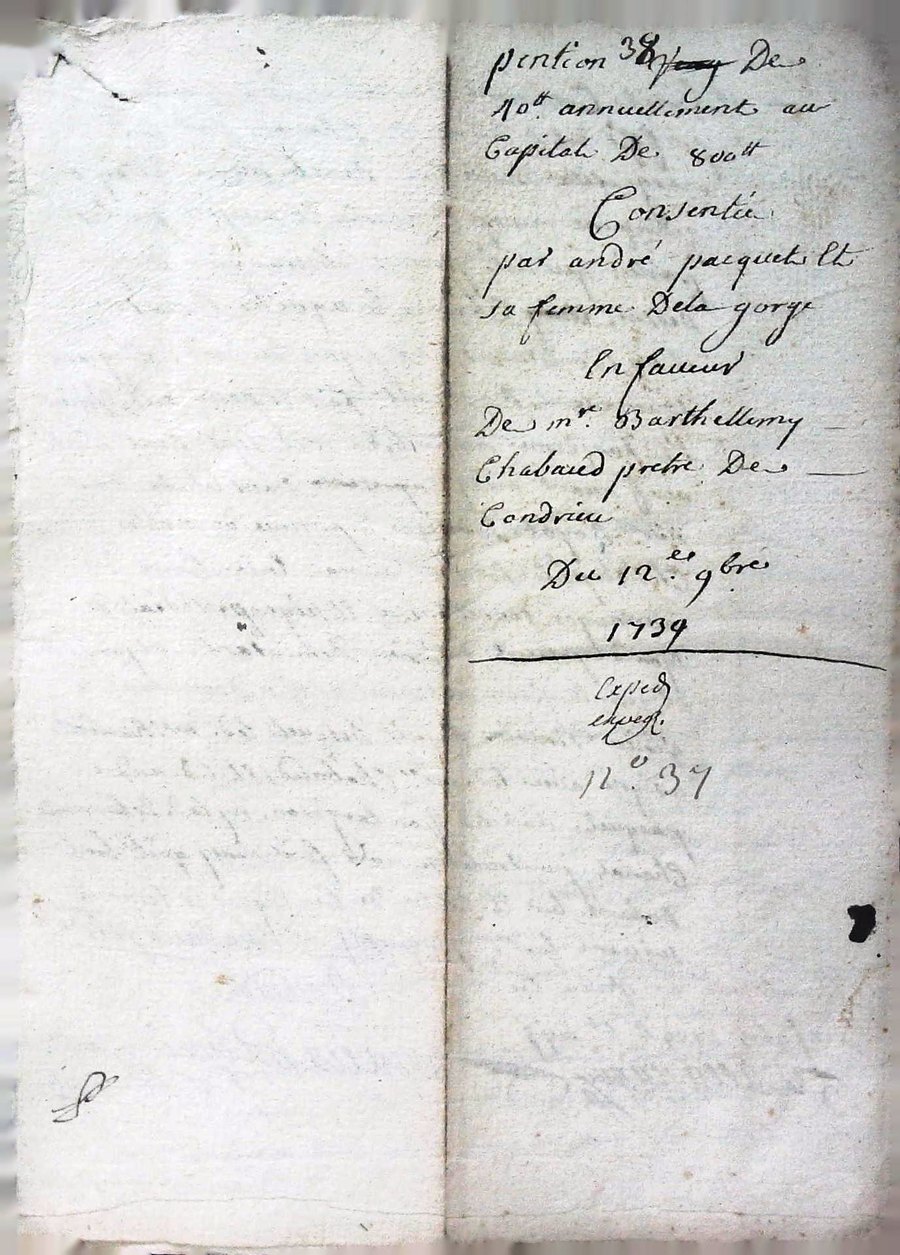 pention 38 De
40tt annuellement au
Capital De 800tt
Consentie
par andré pacquet Et
sa femme Dela gorge
En faveur
De mr. Barthellemy
Chabaud pretre De
Condrieu
Du 12e. 9bre
1739
Exped
n° 37